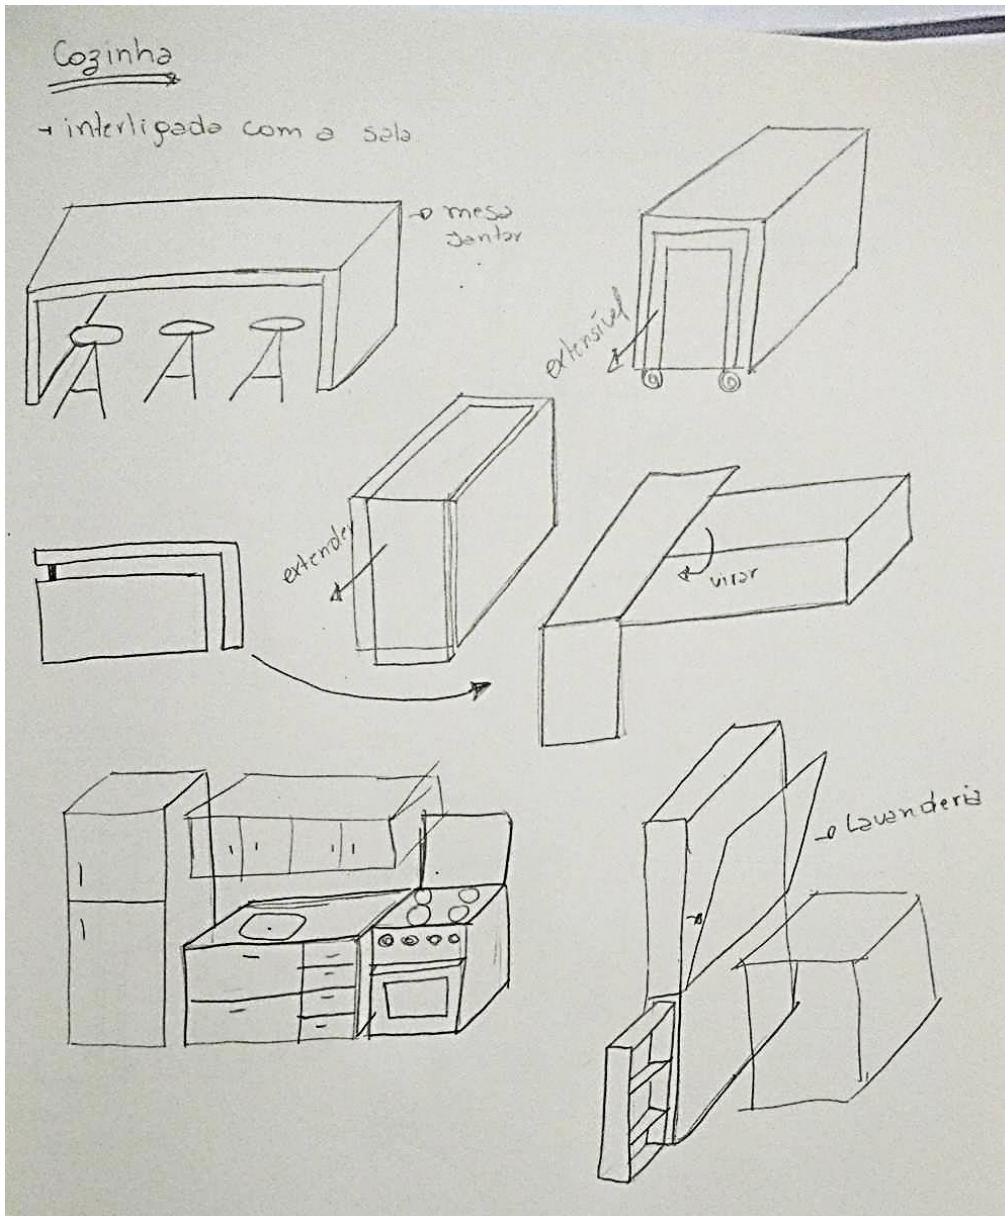 Cozinha
→ interligada com a sala
→ mesa
jantar
extensível
extender
virar
→ Lavanderia